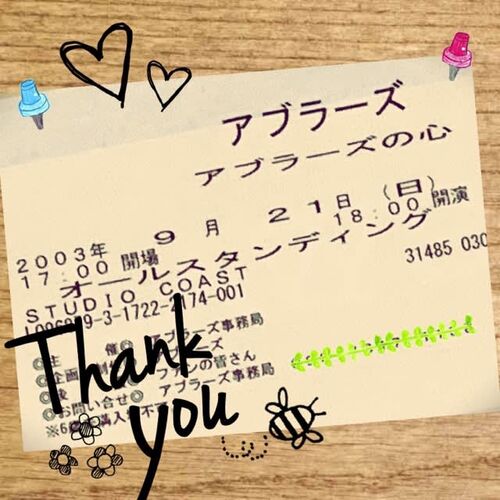 アブラーズ
アブラーズの心
2003年 9月 21日 (日)
17:00 開場 18:00 開演
オールスタンディング
STUDIO COAST
31485 030
-3-1722-2174-001
◎主 催◎ アブラーズ事務局
◎企画
ファンの皆さん
◎お問い合せ◎ アブラーズ事務局
Thank
you